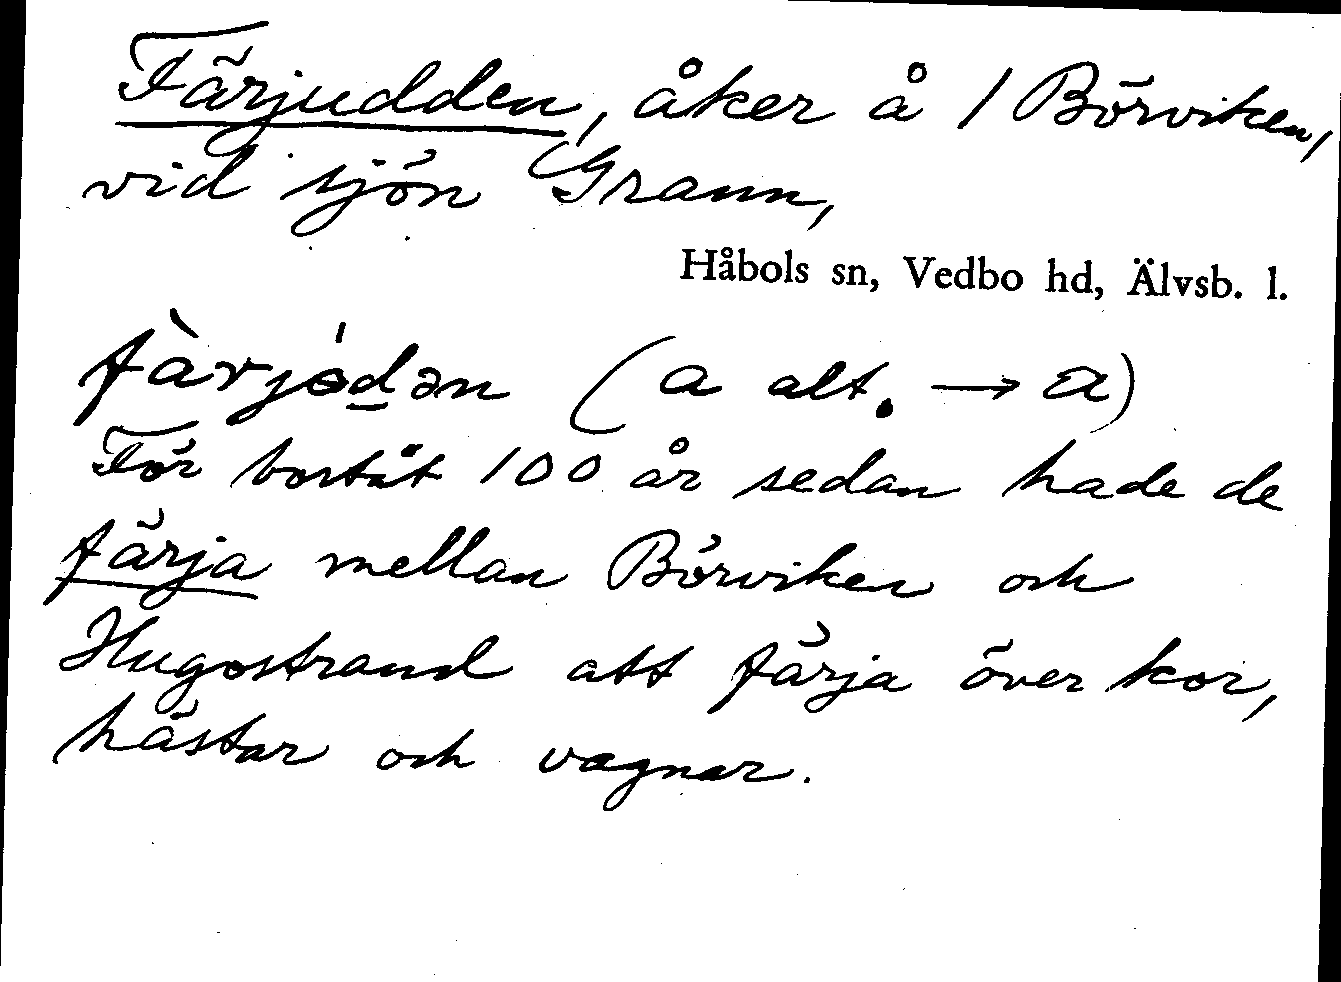 Färjudden, åker å 1 Börviken,
vid sjön Grann,
Håbols sn, Vedbo hd, Älvsb. l.
fàrjódən (a alt. → a)
För bortåt 100 år sedan hade de
färja mellan Börviken och
Hugostrand att färja över kor,
hästar och vagnar.